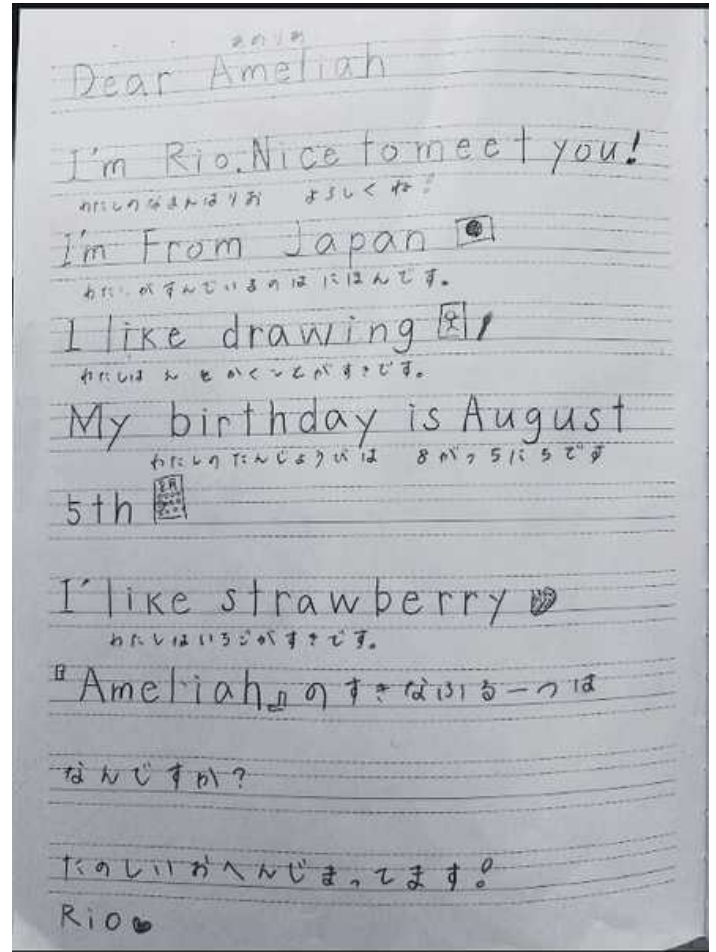 あめりあ
Dear Ameliah
I'm Rio.Nice to meet you!
わたしのなまえはりお よろしくね!
I'm From Japan
わたしがすんでいるのはにほんです。
I like drawing
わたしは え をかくことがすきです。
My birthday is August
わたしのたんじょうびは 8がつ5にちです
5th
I'like strawberry
わたしはいちごがすきです。
『Ameliah』のすきなふるーつは
なんですか?
たのしいおへんじまってます!
Rio